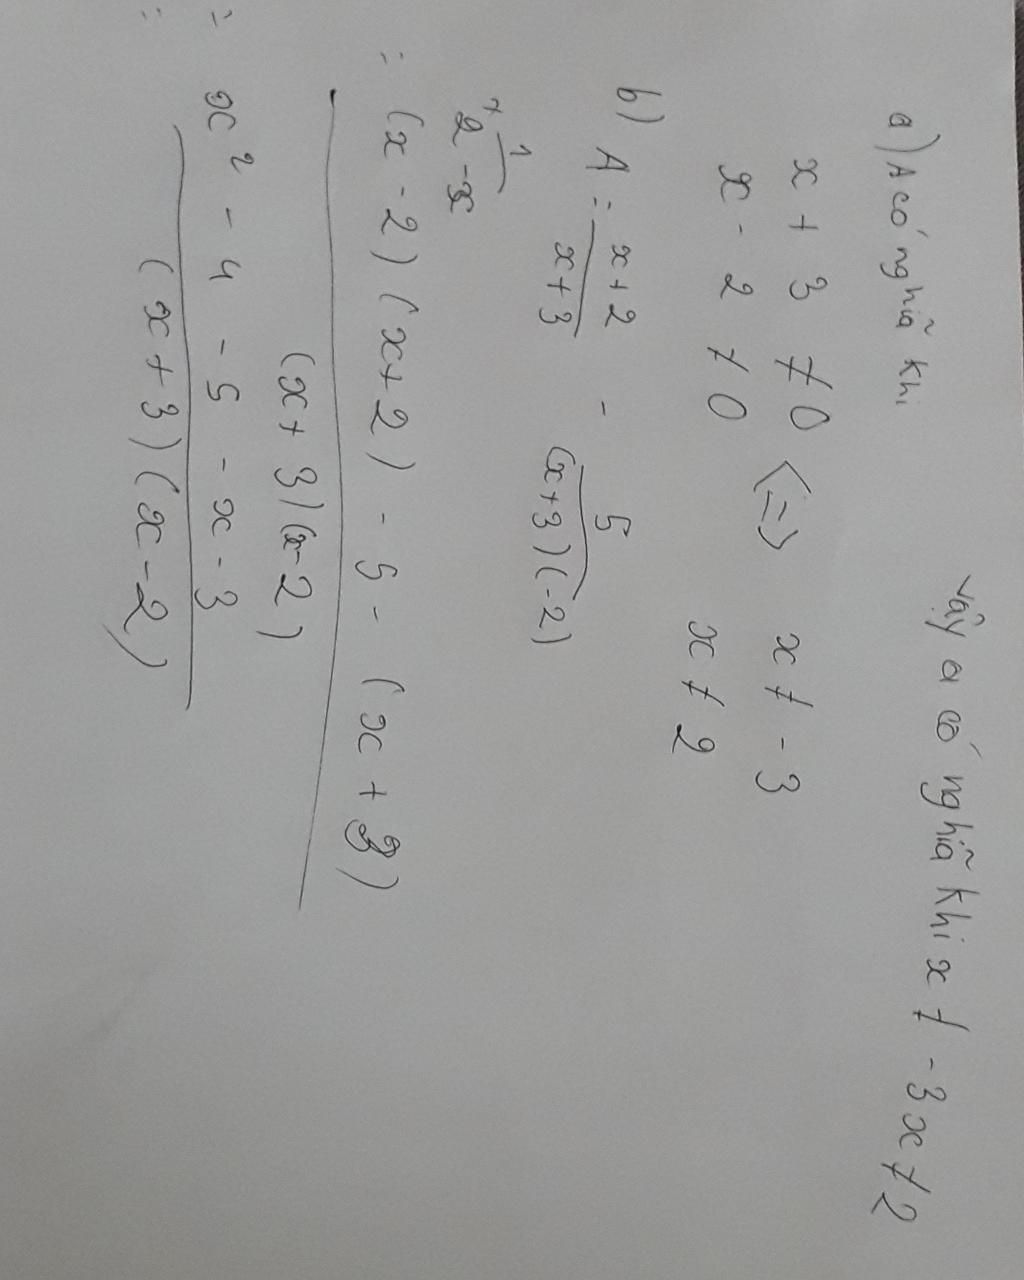 a) A có nghĩã khi
x + 3 ≠ 0 <=> x ≠ - 3
x - 2 ≠ 0 x ≠ 2
vậy a có nghĩã khi x ≠ - 3 x ≠ 2
b) A = \frac{x+2}{x+3} - \frac{5}{(x+3)(-2)}
+ \frac{1}{2-x}
= \frac{(x-2)(x+2) - 5 - (x+3)}{(x+3)(x-2)}
= \frac{x^2 - 4 - 5 - x - 3}{(x+3)(x-2)}
=